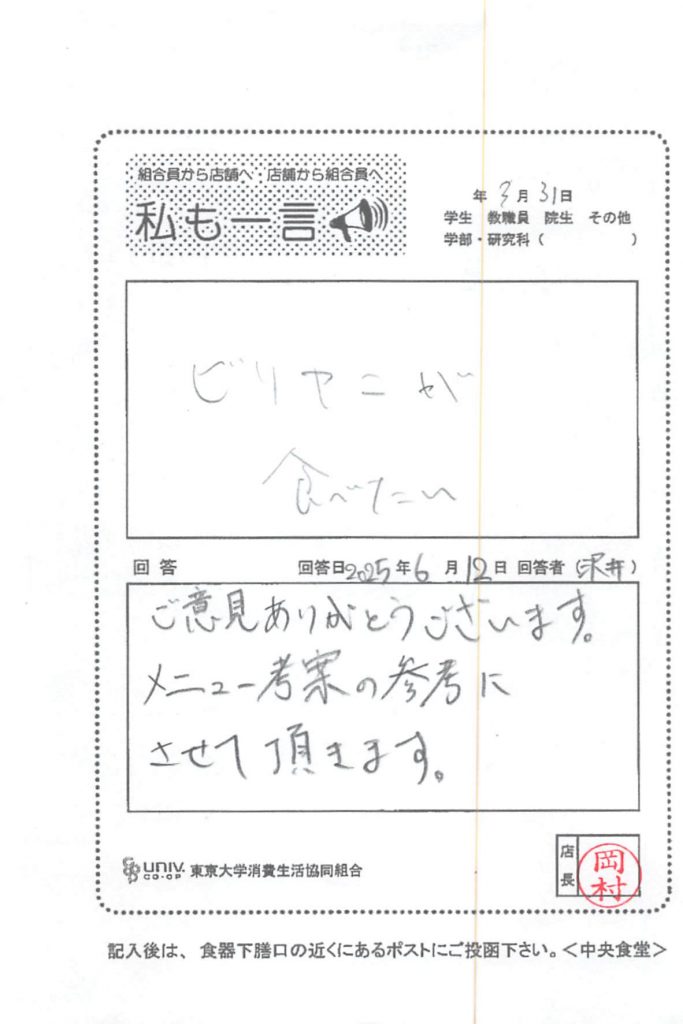 組合員から店舗へ・店舗から組合員へ
私も一言
年 3月 31日
学生 教職員 院生 その他
学部・研究科（ ）
ビリヤニが
食べたい
回答 回答日2025年6月12日 回答者（沢井）
ご意見ありがとうございます。
メニュー考案の参考に
させて頂きます。
UNIV. CO-OP 東京大学消費生活協同組合
店長 岡村
記入後は、食器下膳口の近くにあるポストにご投函下さい。＜中央食堂＞